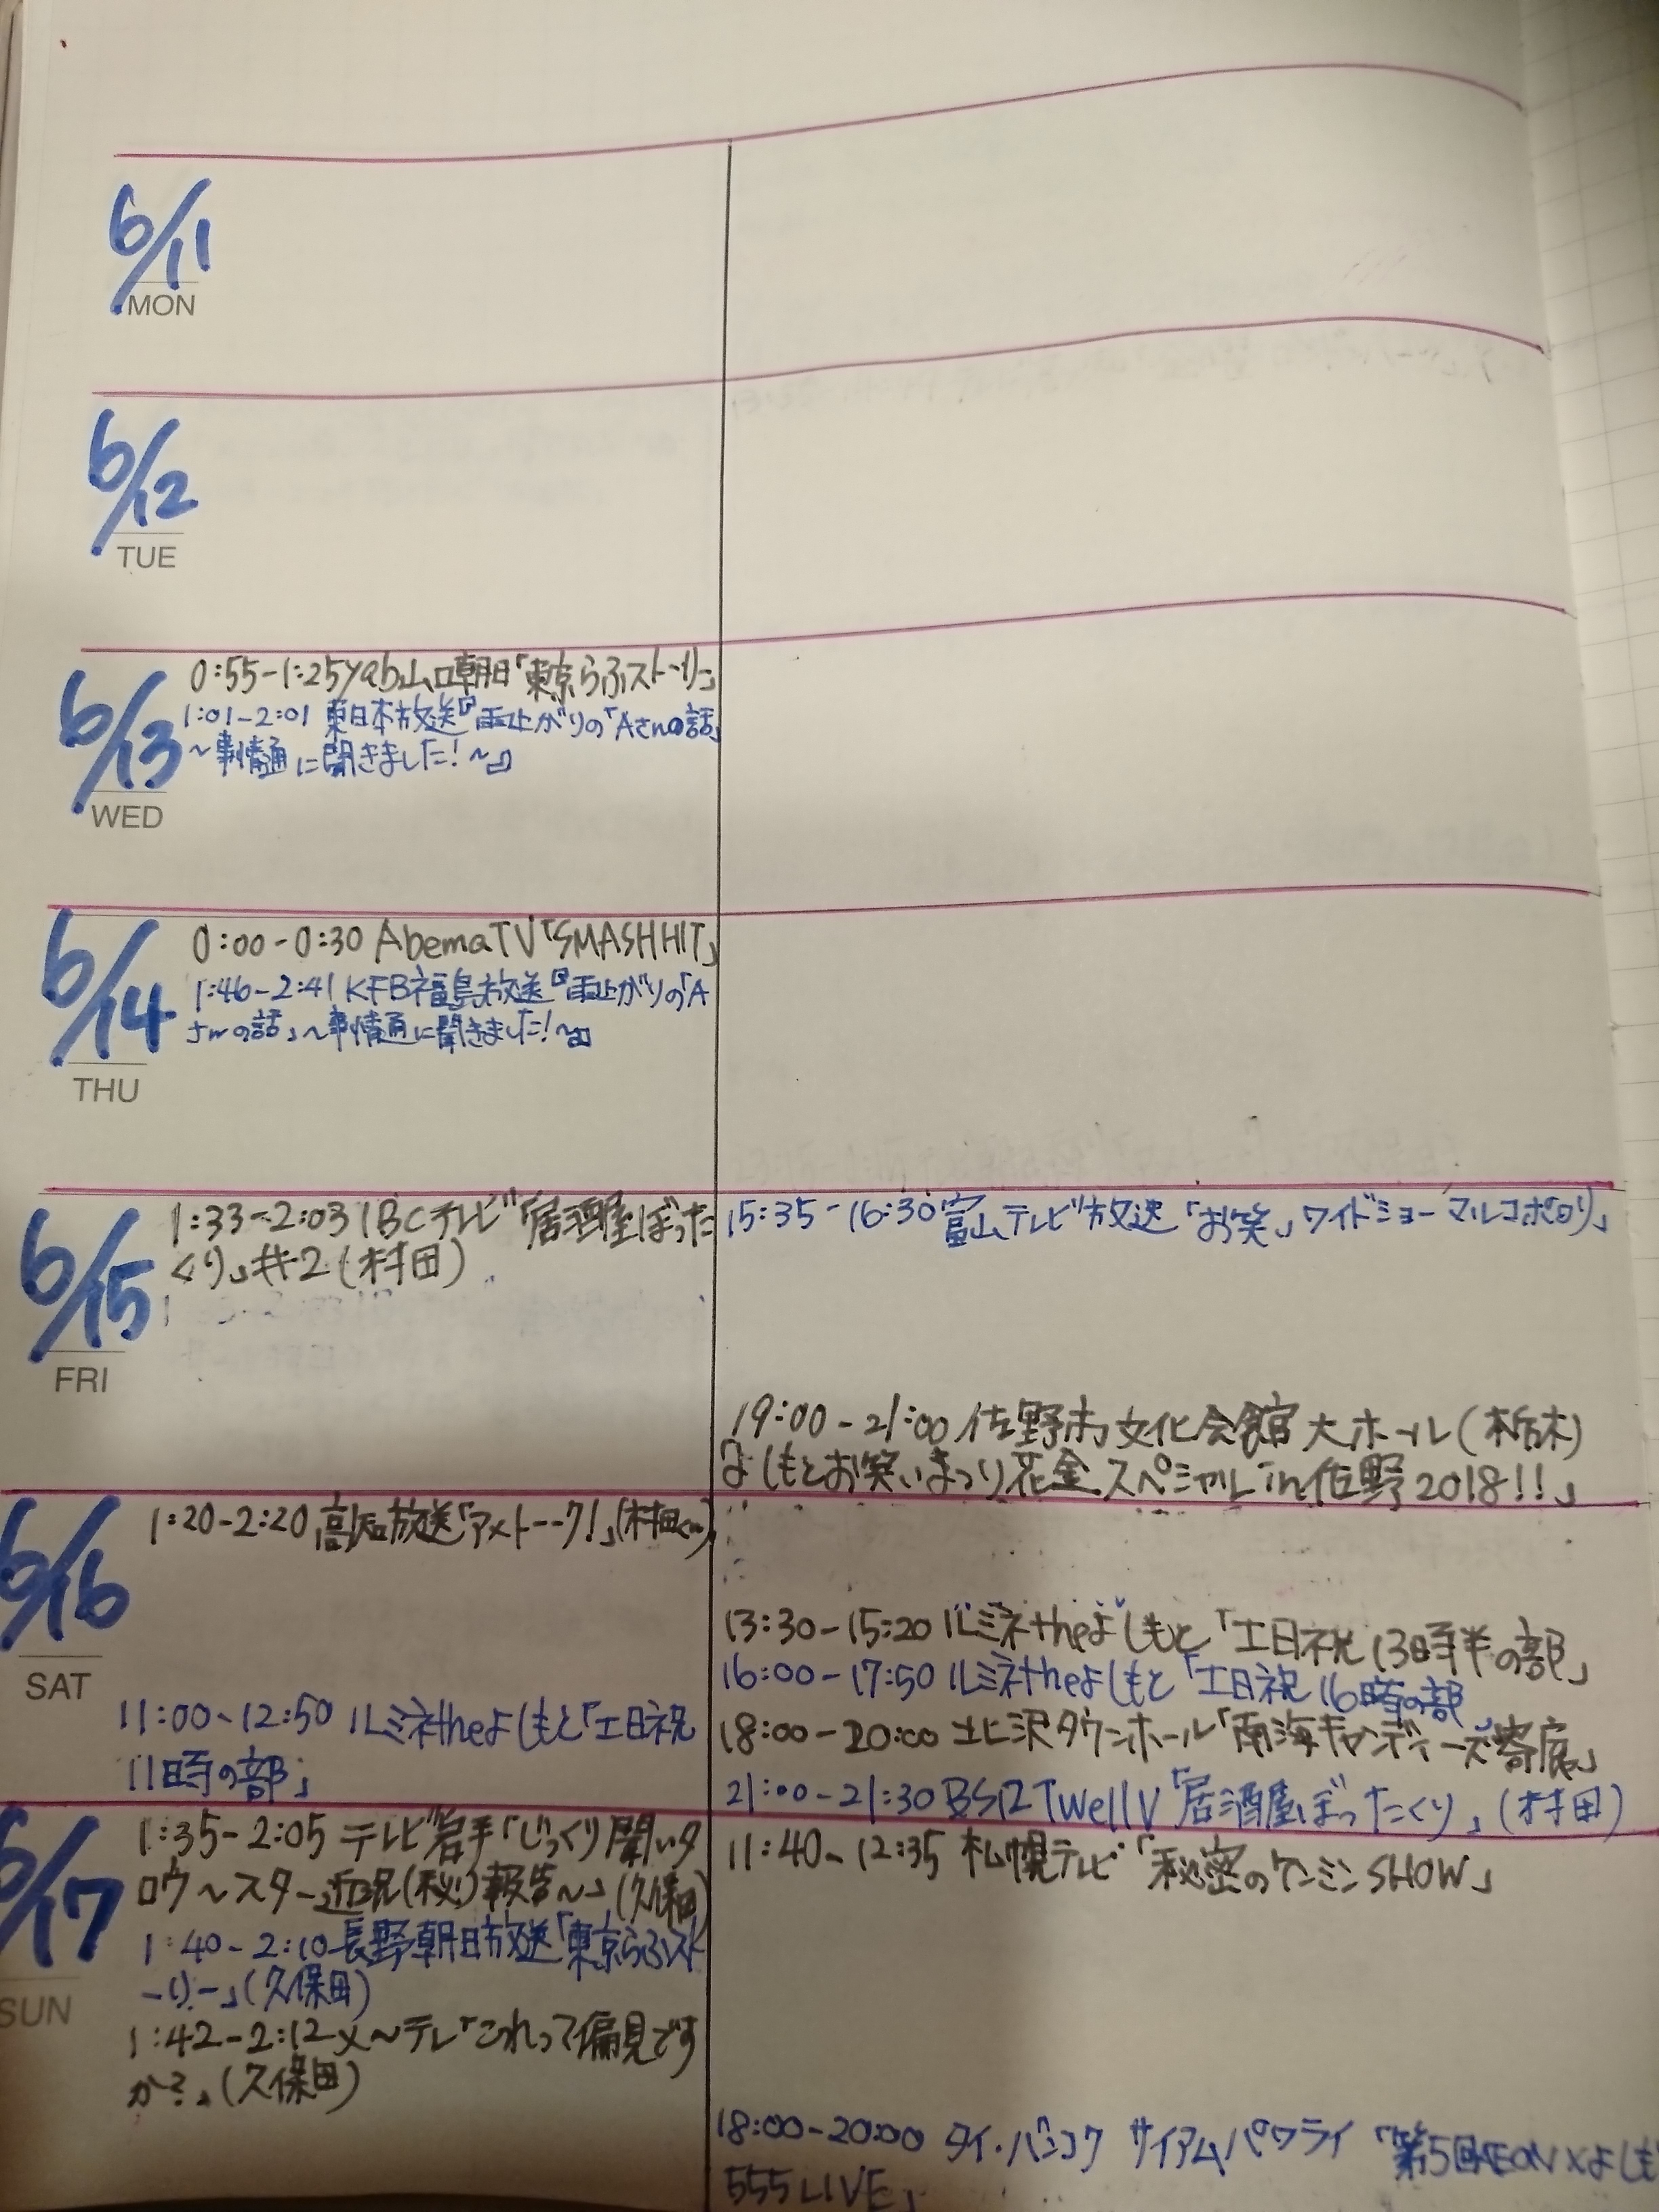 6/11
MON
6/12
TUE
6/13
WED
0:55-1:25yab山口朝日「東京らふストーリー」
1:01-2:01 東日本放送『雨上がりの「Aさんの話」
～事情通に聞きました!～』
6/14
THU
0:00-0:30 AbemaTV「SMASH HIT」
1:46-2:41 KFB福島放送『雨上がりの「A
さんの話」～事情通に聞きました!～』
6/15
FRI
1:33-2:03 IBCテレビ「居酒屋ぼった
くり」#2(村田)
15:35-16:30富山テレビ放送「お笑いワイドショー マルコポロリ」
19:00-21:00 佐野市文化会館 大ホール(栃木)
「よしもとお笑いまつり花金スペシャルin佐野2018!!」
6/16
SAT
1:20-2:20高知放送「アメトーーク!」(村田くん)
11:00-12:50 ルミネtheよしもと「土日祝
11時の部」
13:30-15:20 ルミネtheよしもと「土日祝 13時半の部」
16:00-17:50 ルミネtheよしもと「土日祝 16時の部」
18:00-20:00 北沢タウンホール「南海キャンディーズ寄席」
21:00-21:30 BS12 TwellV「居酒屋ぼったくり」(村田)
6/17
SUN
1:35-2:05 テレビ岩手「じっくり聞いタ
ロウ～スター近況(秘)報告～」(久保田)
1:40-2:10長野朝日放送「東京らふスト
ーリー」(久保田)
1:42-2:12メ～テレ「これって偏見です
か?」(久保田)
11:40-12:35 札幌テレビ「秘密のケンミンSHOW」
18:00-20:00 タイ・バンコク サイアムパワライ 「第5回AEON×よしも
555 LIVE」